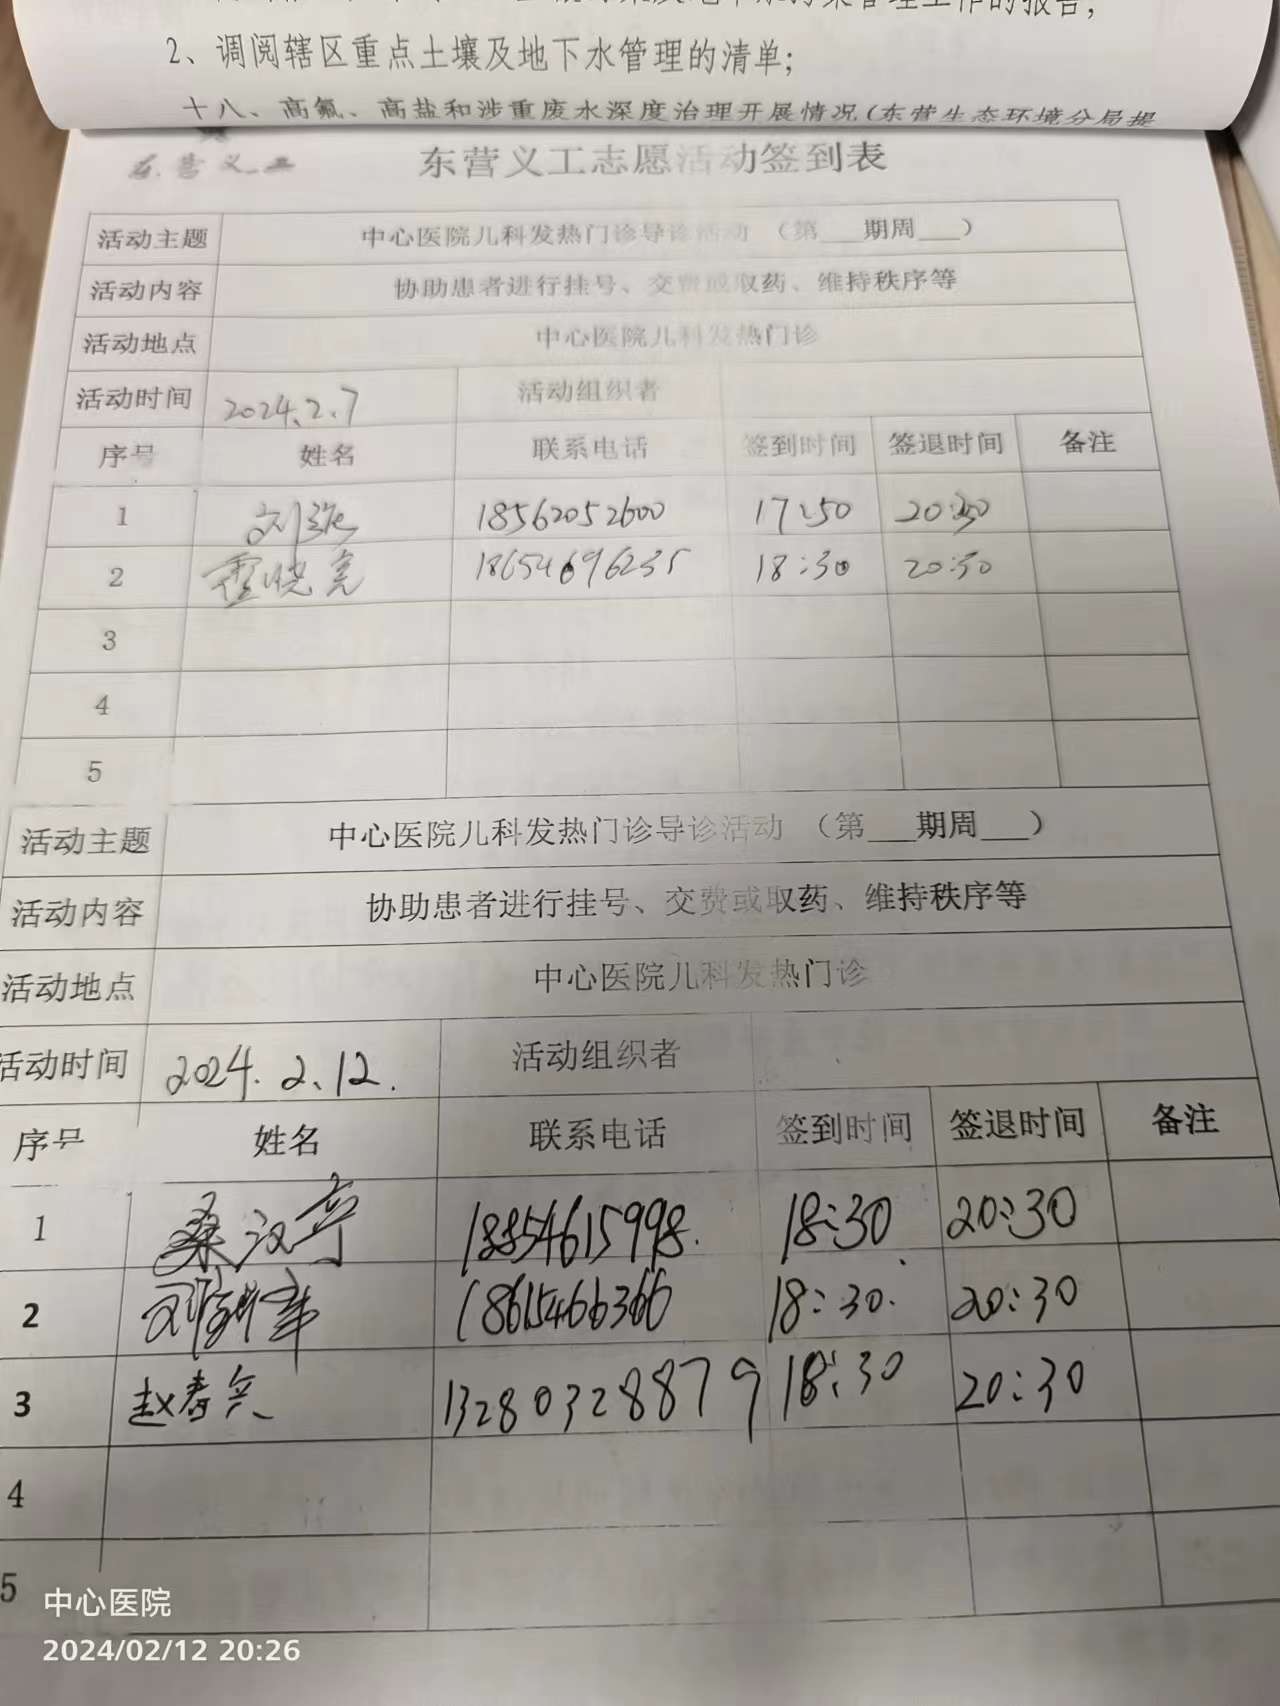 2、调阅辖区重点土壤及地下水管理的清单;
十八、高氟、高盐和涉重废水深度治理开展情况(东营生态环境分局提
东营义工
东营义工志愿活动签到表
活动主题 中心医院儿科发热门诊导诊活动 (第___期周___)
活动内容 协助患者进行挂号、交费或取药、维持秩序等
活动地点 中心医院儿科发热门诊
活动时间 2024.2.7 活动组织者
序号 姓名 联系电话 签到时间 签退时间 备注
1 刘 18562052600 17:50 20:30
2 霍晓亮 18654696235 18:30 20:30
3
4
5
活动主题 中心医院儿科发热门诊导诊活动 (第___期周___)
活动内容 协助患者进行挂号、交费或取药、维持秩序等
活动地点 中心医院儿科发热门诊
活动时间 2024.2.12. 活动组织者
序号 姓名 联系电话 签到时间 签退时间 备注
1 桑汉亭 18854615998. 18:30 20:30
2 18:30. 20:30
3 赵春兴 13280328879 18:30 20:30
4
5
中心医院
2024/02/12 20:26